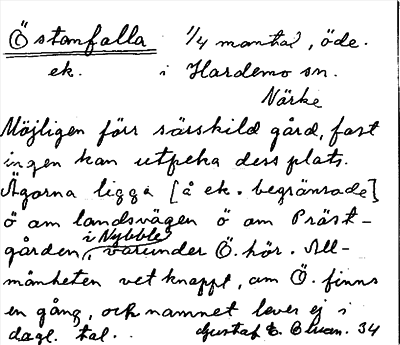 Östanfalla 1/4 mantal, öde.
ek. i Hardemo sn.
Närke
Möjligen förr särskild gård, fast
ingen kan utpeka dess plats.
Ägorna ligga [å ek. begränsade]
ö om landsvägen ö om Präst-
gården i Nybble, varunder Ö. hör. All-
mänheten vet knappt, om Ö. finns
en gång, och namnet lever ej i
dagl. tal. Gustaf E. 34